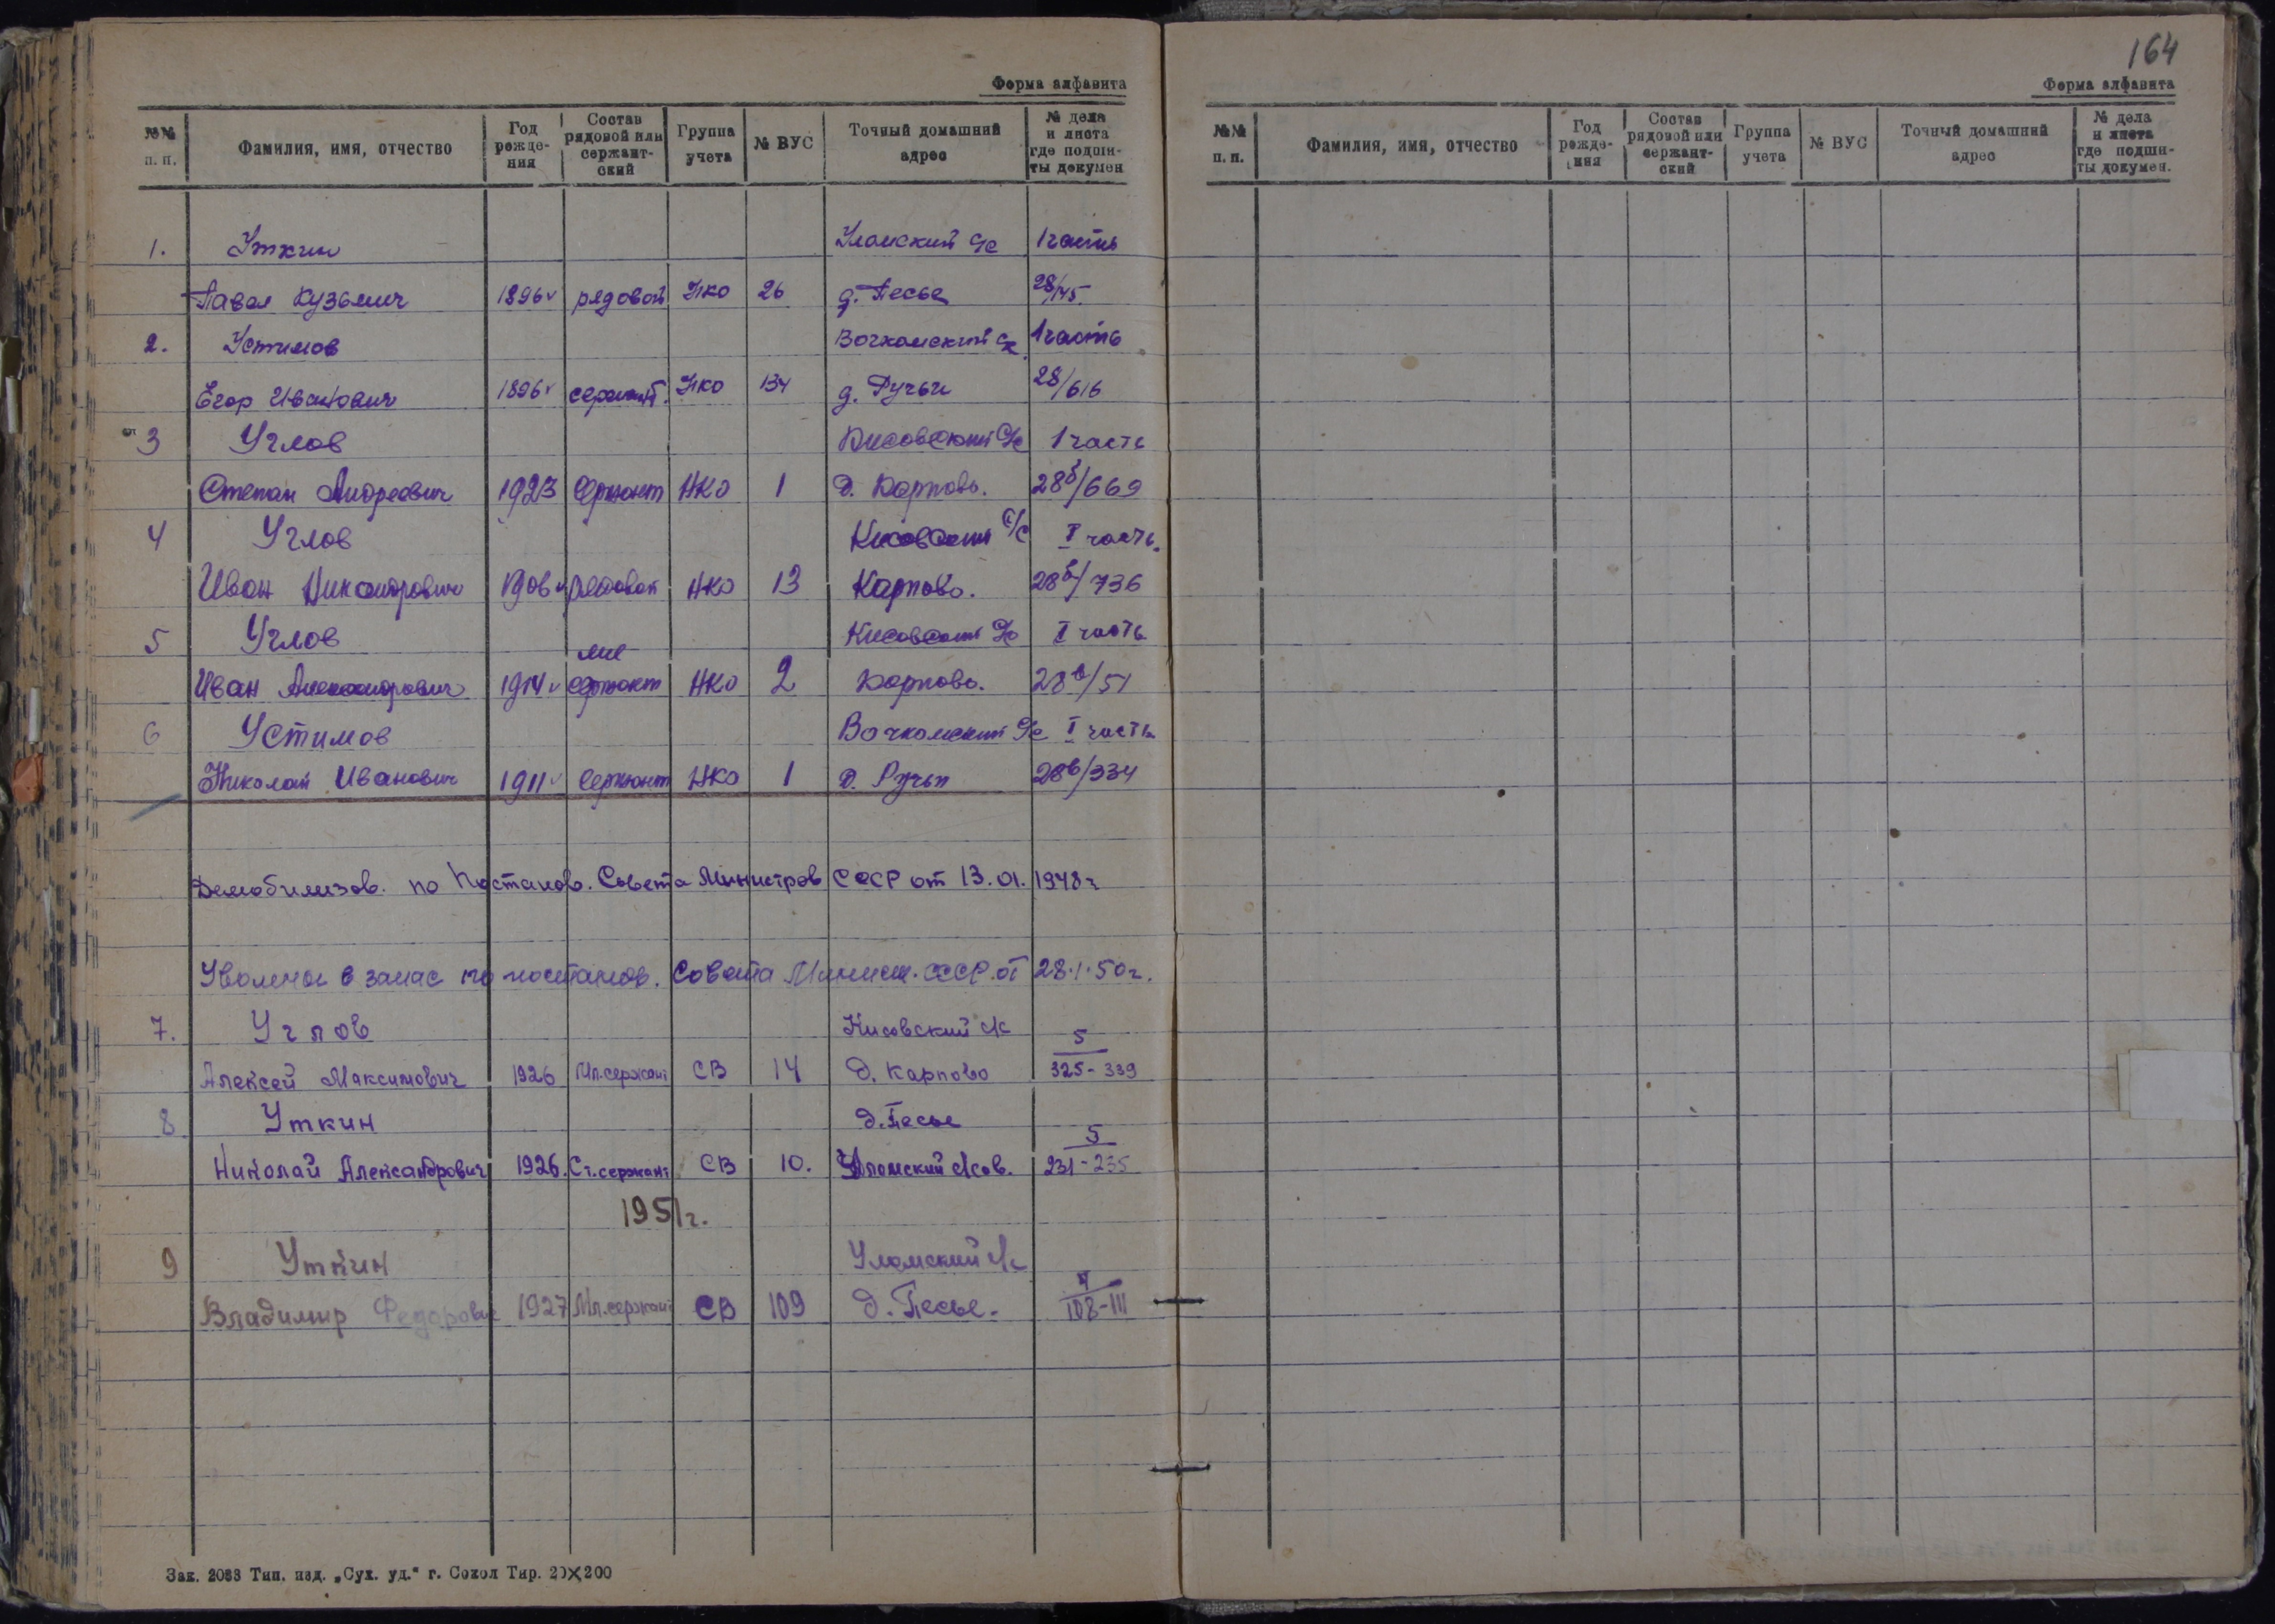 Форма алфавита
№№ п. п. Фамилия, имя, отчество Год рожде- ния Состав рядовой или сержант- ский Группа учета № ВУС Точный домашний адрес № дела и листа где подши- ты докумен
1. Уткин Уломский с/с 1 часть
Павел Кузьмич 1896 рядовой НКО 26 д. Песье 28/145
2. Устимов Вочкомский с/с 1 часть
Егор Иванович 1896 сержант. НКО 134 д. Ручьи 28/616
3 Углов Кисовский с/с 1 часть
Степан Андреевич 1923 сержант НКО 1 д. Карпово. 28б/669
4 Углов Кисовский с/с I часть.
Иван Никандрович 1906 рядовой НКО 13 Карпово. 28б/736
5 Углов Кисовский с/с I часть
мл
Иван Александрович 1914 сержант НКО 2 Карпово. 28в/51
6 Устимов Вочкомский с/с I часть
Николай Иванович 1911 Сержант НКО 1 д. Ручьи 28в/334
Демобилизов. по Постанов. Совета Министров СССР от 13.01.1948 г
Уволены в запас по постанов. Совета Минист. СССР. от 28.1.50 г.
7. Углов Кисовский с/с
Алексей Максимович 1926 Мл.сержант СВ 14 д. Карпово 5 325-339
8 Уткин д. Песье
Николай Александрович 1926. Ст.сержант СВ 10. Уломский с/сов. 5 231-235
1951 г.
9 Уткин Уломский с/с
Владимир Федорович 1927 Мл.сержант СВ 109 д. Песье. 108-111
Зак. 2088 Тип. изд. „Сух. уд.“ г. Сокол Тир. 20×200
164
Форма алфавита
№№ п. п. Фамилия, имя, отчество Год рожде- ния Состав рядовой или сержант- ский Группа учета № ВУС Точный домашний адрес № дела и листа где подши- ты докумен.